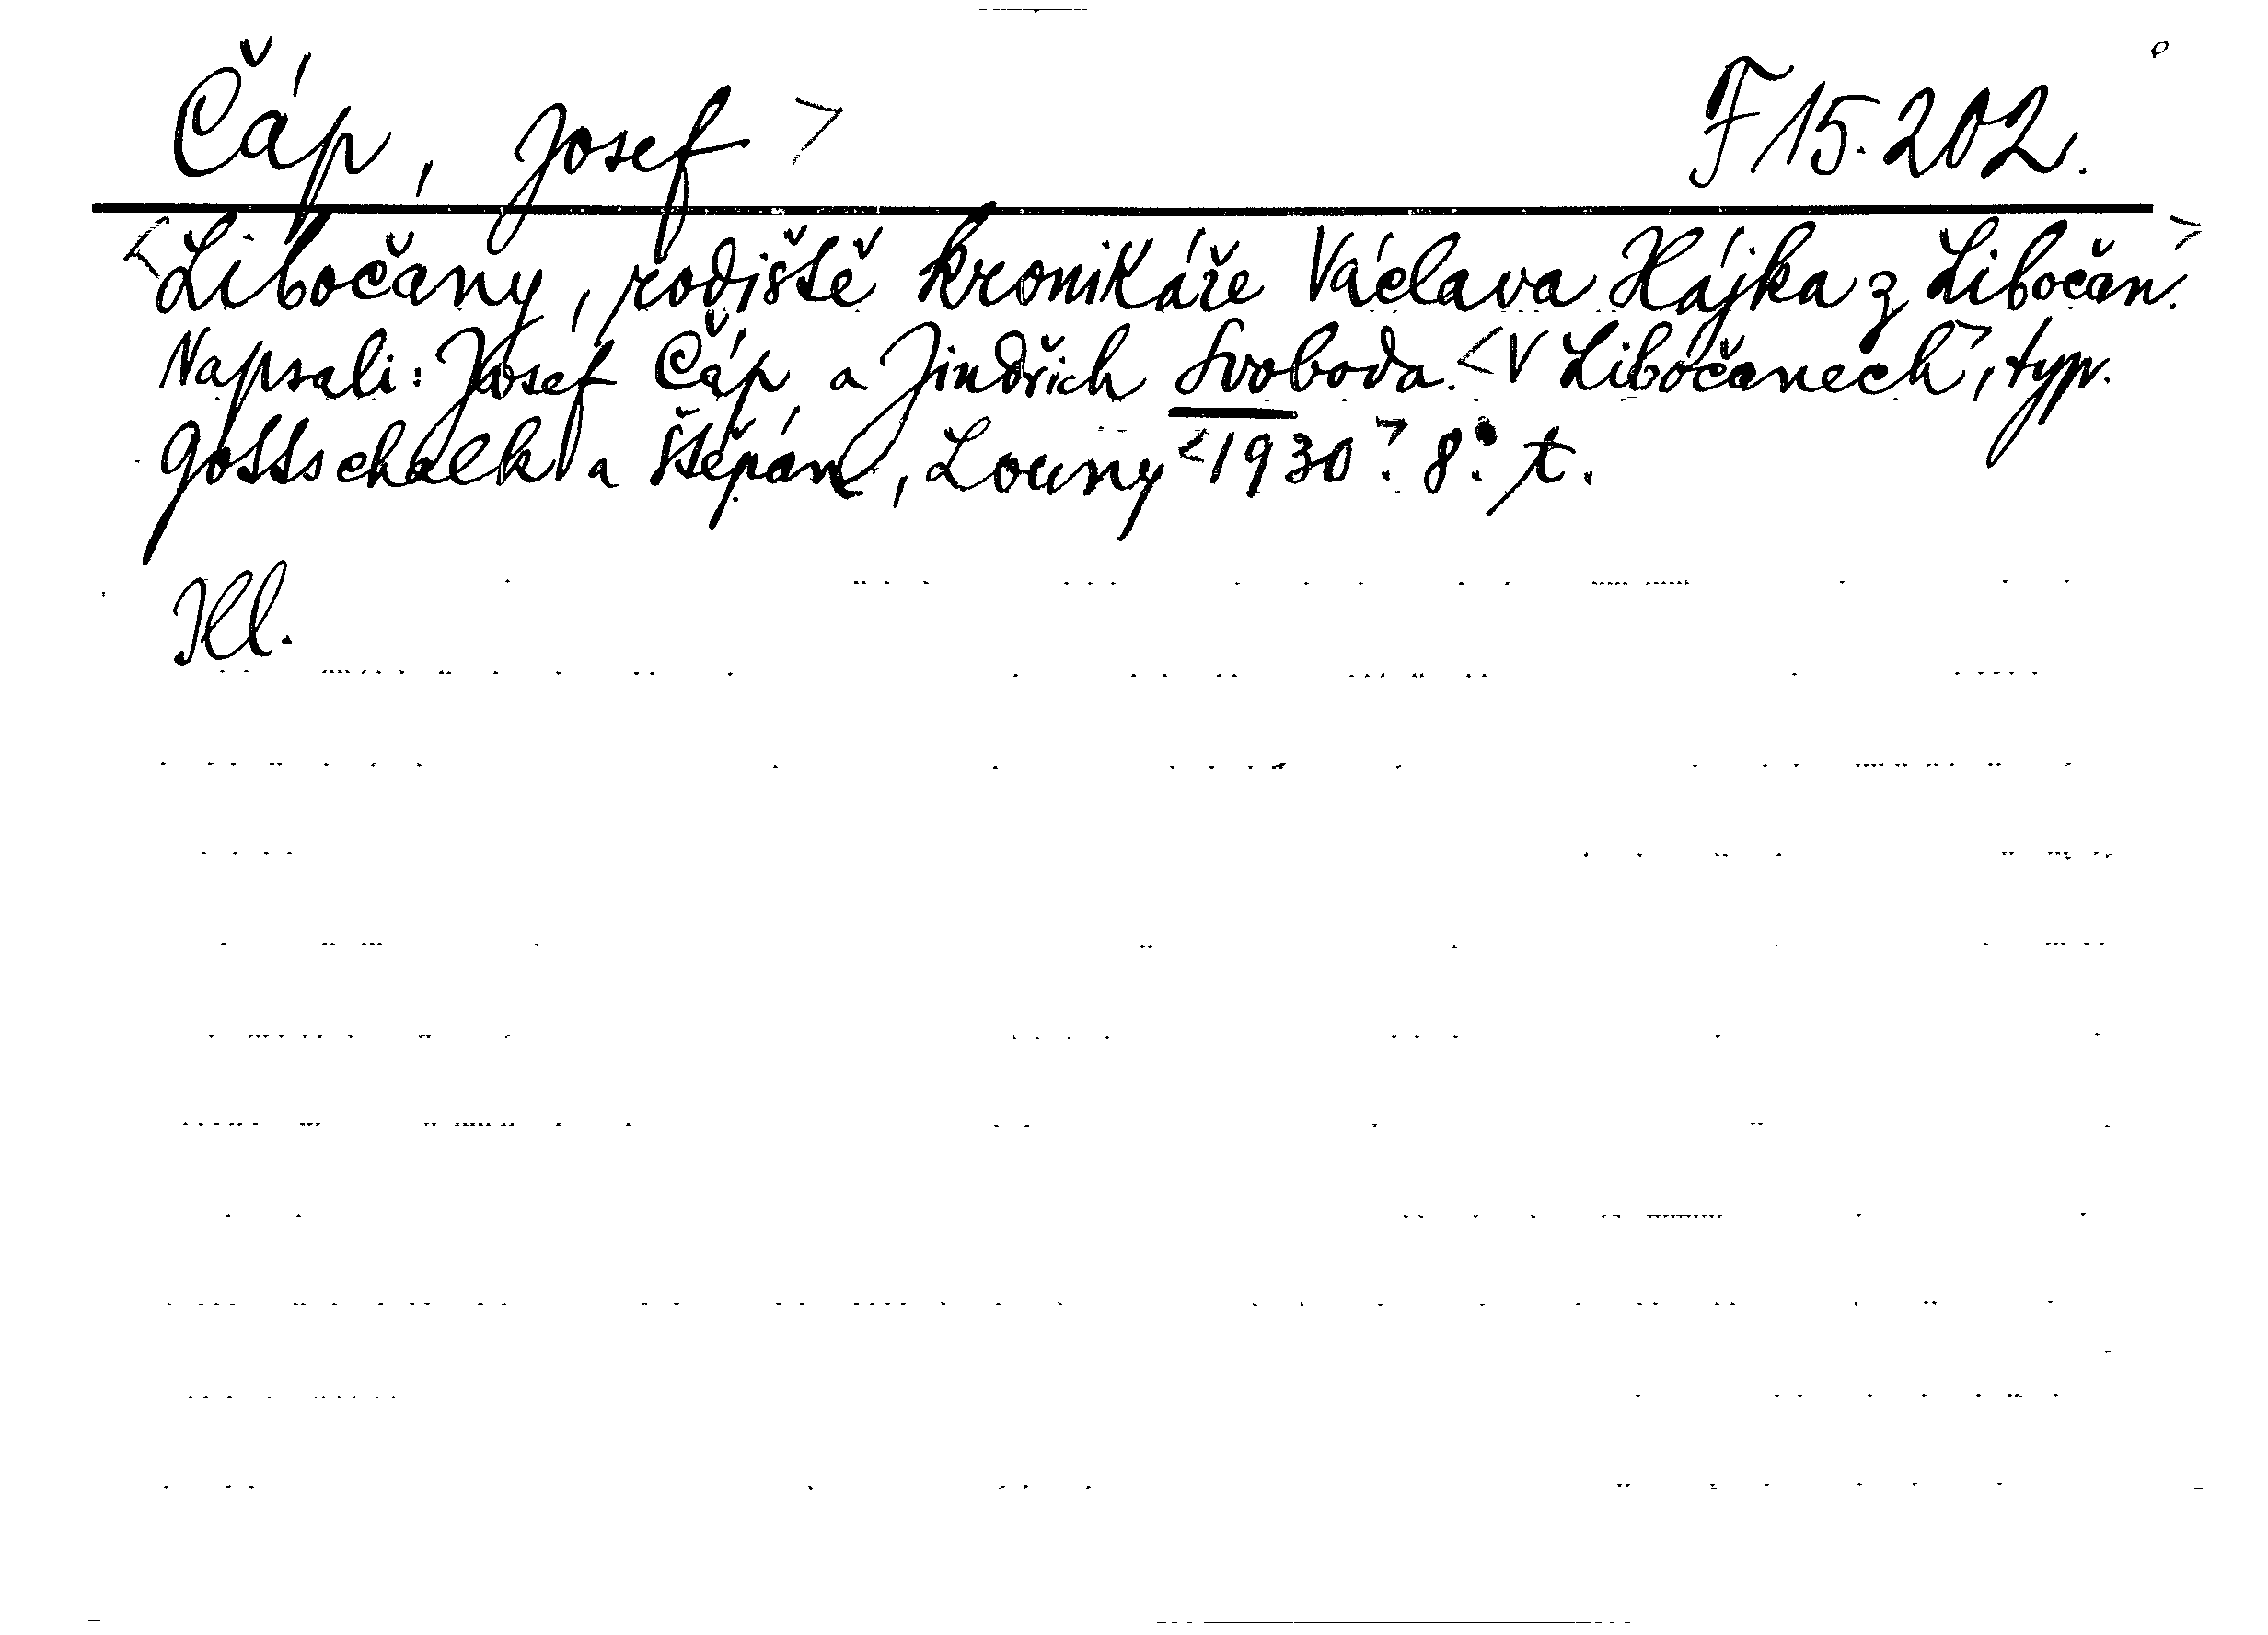 Čáp, Josef > F 15.202.
<Libočany, rodiště kronikáře Václava Hájka z Libočan.>
Napsali: Josef Čáp a Jindřich Svoboda. <V Libočanech>, typ.
Gottschalk a Štěpán, Louny <1930>. 8°. t.
Kl.